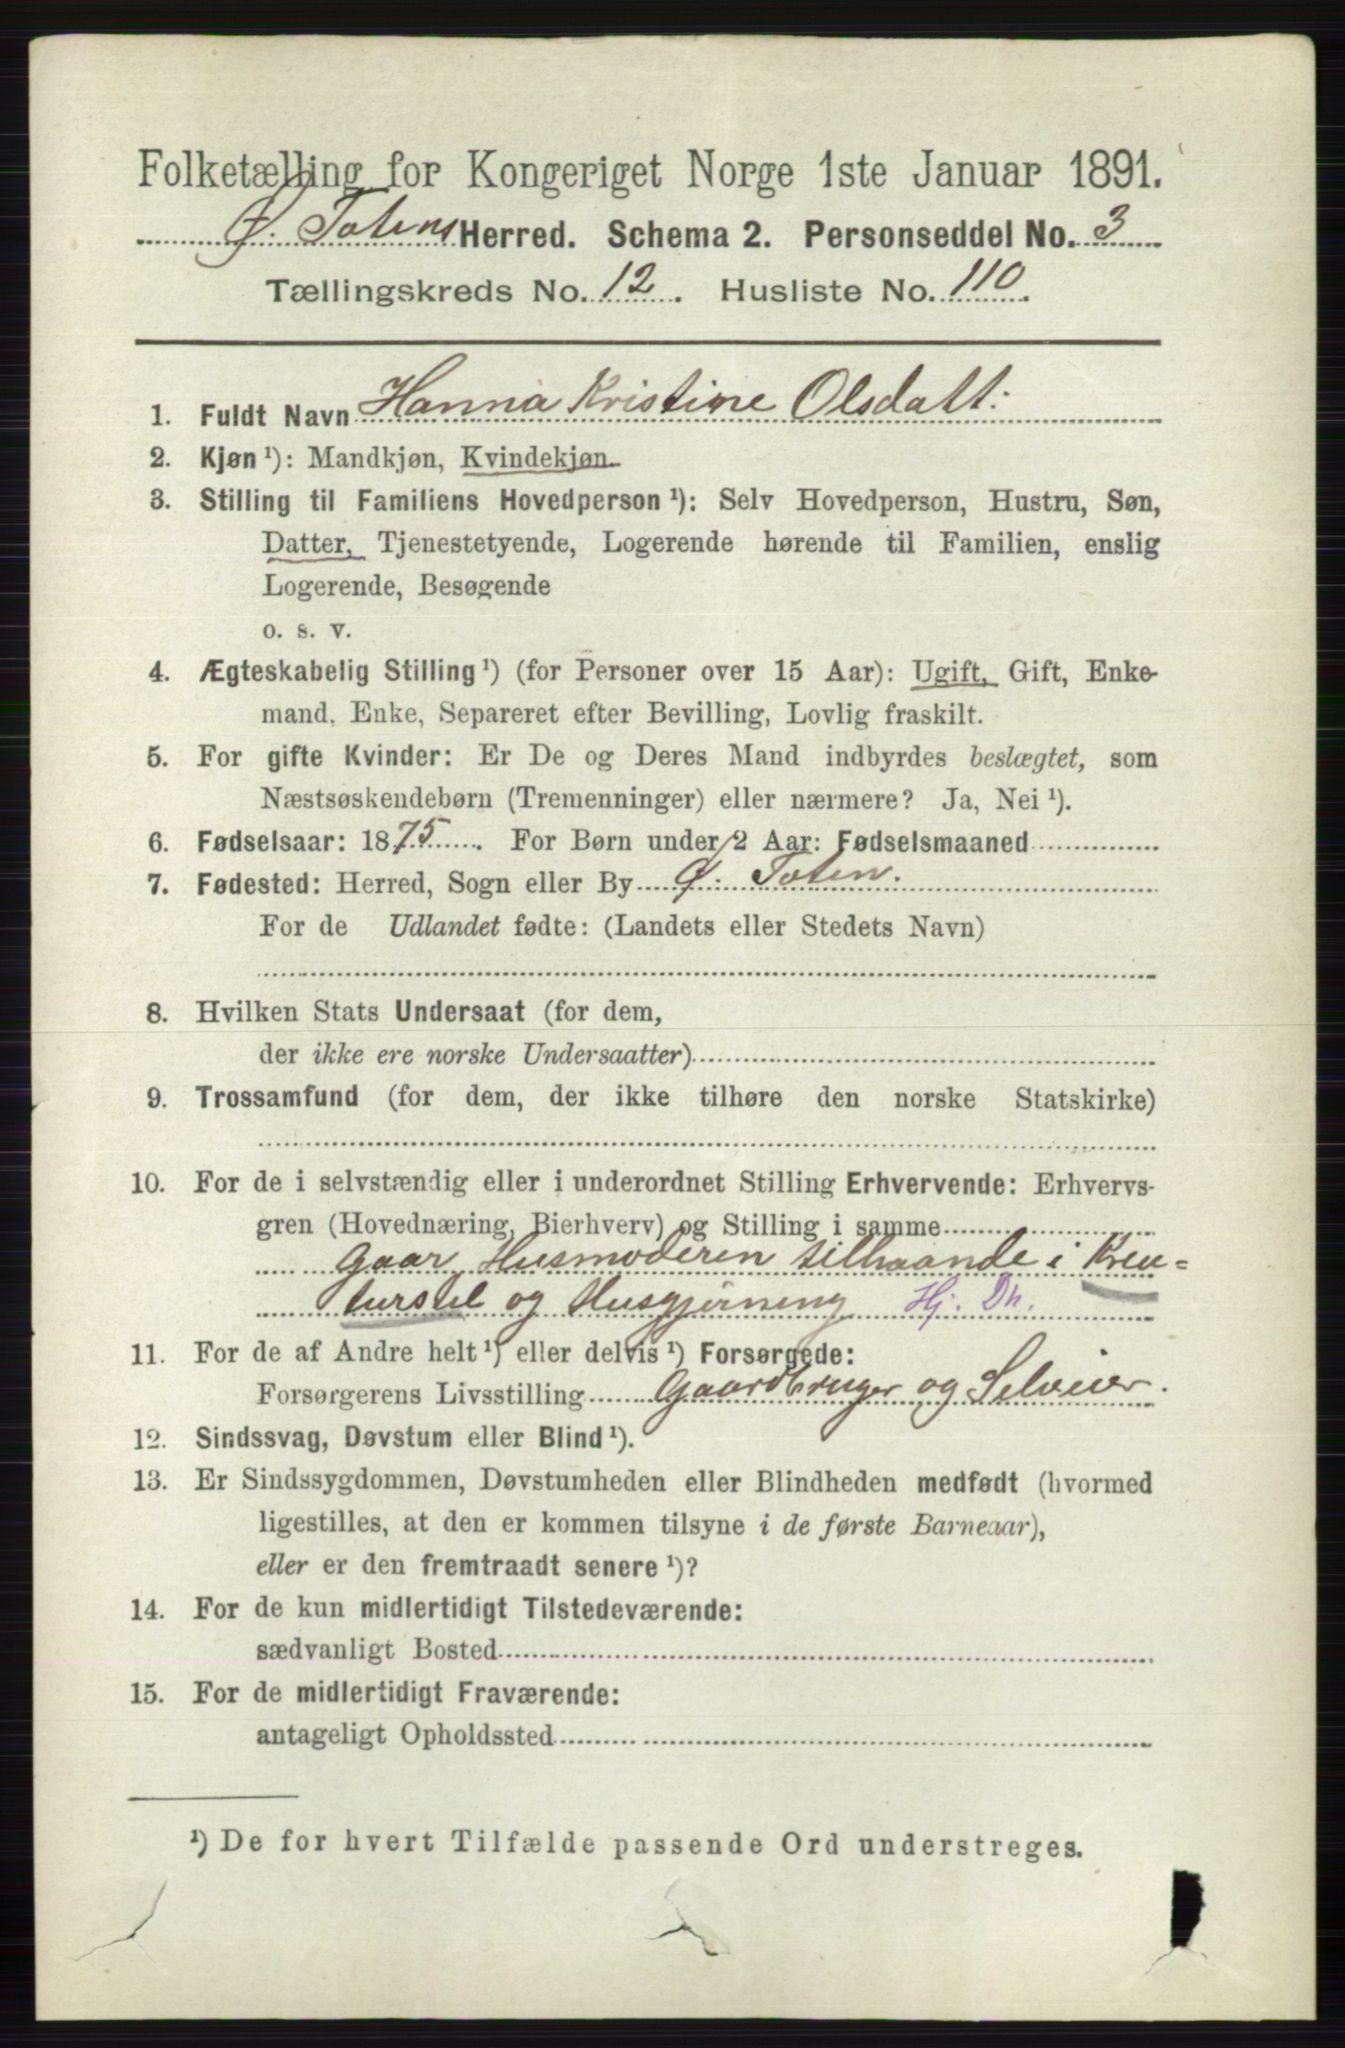 Folketælling for Kongeriget Norge 1ste Januar 1891.
Ø. Totens Herred. Schema 2. Personseddel No. 3
Tællingskreds No. 12. Husliste No. 110.
1. Fuldt Navn Hanna Kristine Olsdatt:
2. Kjøn ¹): Mandkjøn, Kvindekjøn
3. Stilling til Familiens Hovedperson ¹): Selv Hovedperson, Hustru, Søn,
Datter, Tjenestetyende, Logerende hørende til Familien, enslig
Logerende, Besøgende
o. s. v.
4. Ægteskabelig Stilling ¹) (for Personer over 15 Aar): Ugift, Gift, Enke-
mand, Enke, Separeret efter Bevilling, Lovlig fraskilt.
5. For gifte Kvinder: Er De og Deres Mand indbyrdes beslægtet, som
Næstsøskendebørn (Tremenninger) eller nærmere? Ja, Nei ¹).
6. Fødselsaar: 1875. For Børn under 2 Aar: Fødselsmaaned
7. Fødested: Herred, Sogn eller By Ø. Toten.
For de Udlandet fødte: (Landets eller Stedets Navn)
8. Hvilken Stats Undersaat (for dem,
der ikke ere norske Undersaatter)
9. Trossamfund (for dem, der ikke tilhøre den norske Statskirke)
10. For de i selvstændig eller i underordnet Stilling Erhvervende: Erhvervs-
gren (Hovednæring, Bierhverv) og Stilling i samme
Gaar Husmoderen tilhaande i Krea=
turstel og Husgjerning Hj. Dh.
11. For de af Andre helt ¹) eller delvis ¹) Forsørgede:
Forsørgerens Livsstilling Gaardbruger og Selveier.
12. Sindssvag, Døvstum eller Blind ¹).
13. Er Sindssygdommen, Døvstumheden eller Blindheden medfødt (hvormed
ligestilles, at den er kommen tilsyne i de første Barneaar),
eller er den fremtraadt senere ¹)?
14. For de kun midlertidigt Tilstedeværende:
sædvanligt Bosted
15. For de midlertidigt Fraværende:
antageligt Opholdssted
¹) De for hvert Tilfælde passende Ord understreges.